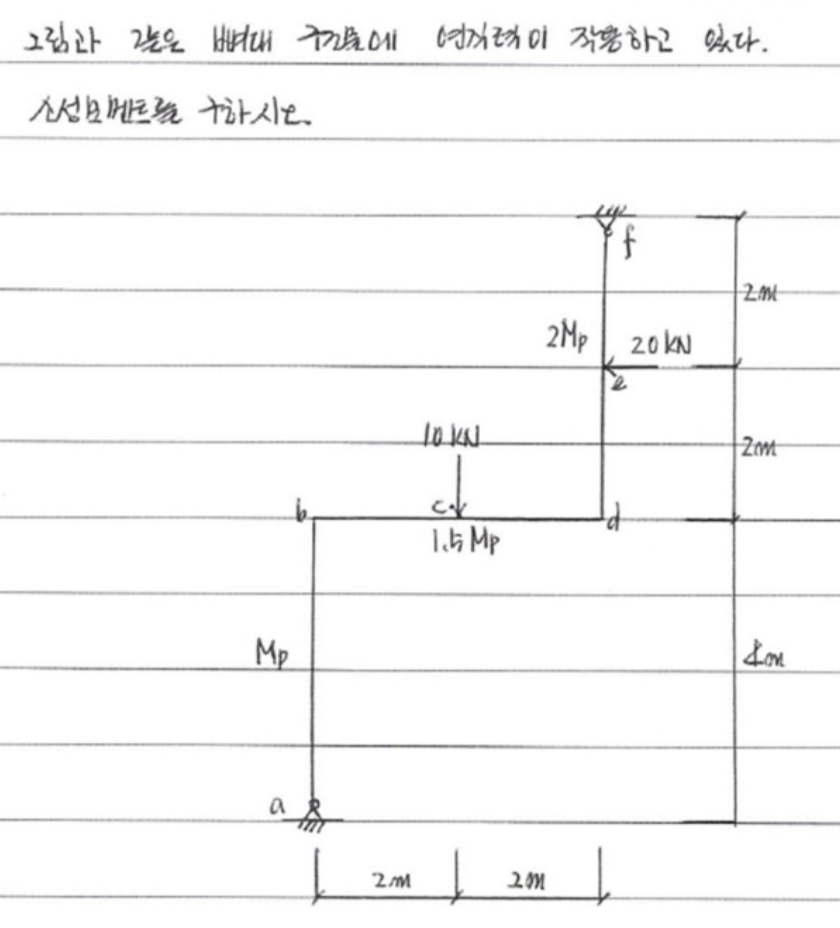 그림과 같은 뼈대 구조물에 연직력이 작용하고 있다.
소성모멘트를 구하시오.
f
2m
2Mp
20kN
e
10kN
2m
b
c
d
1.5Mp
Mp
4m
a
2m
2m